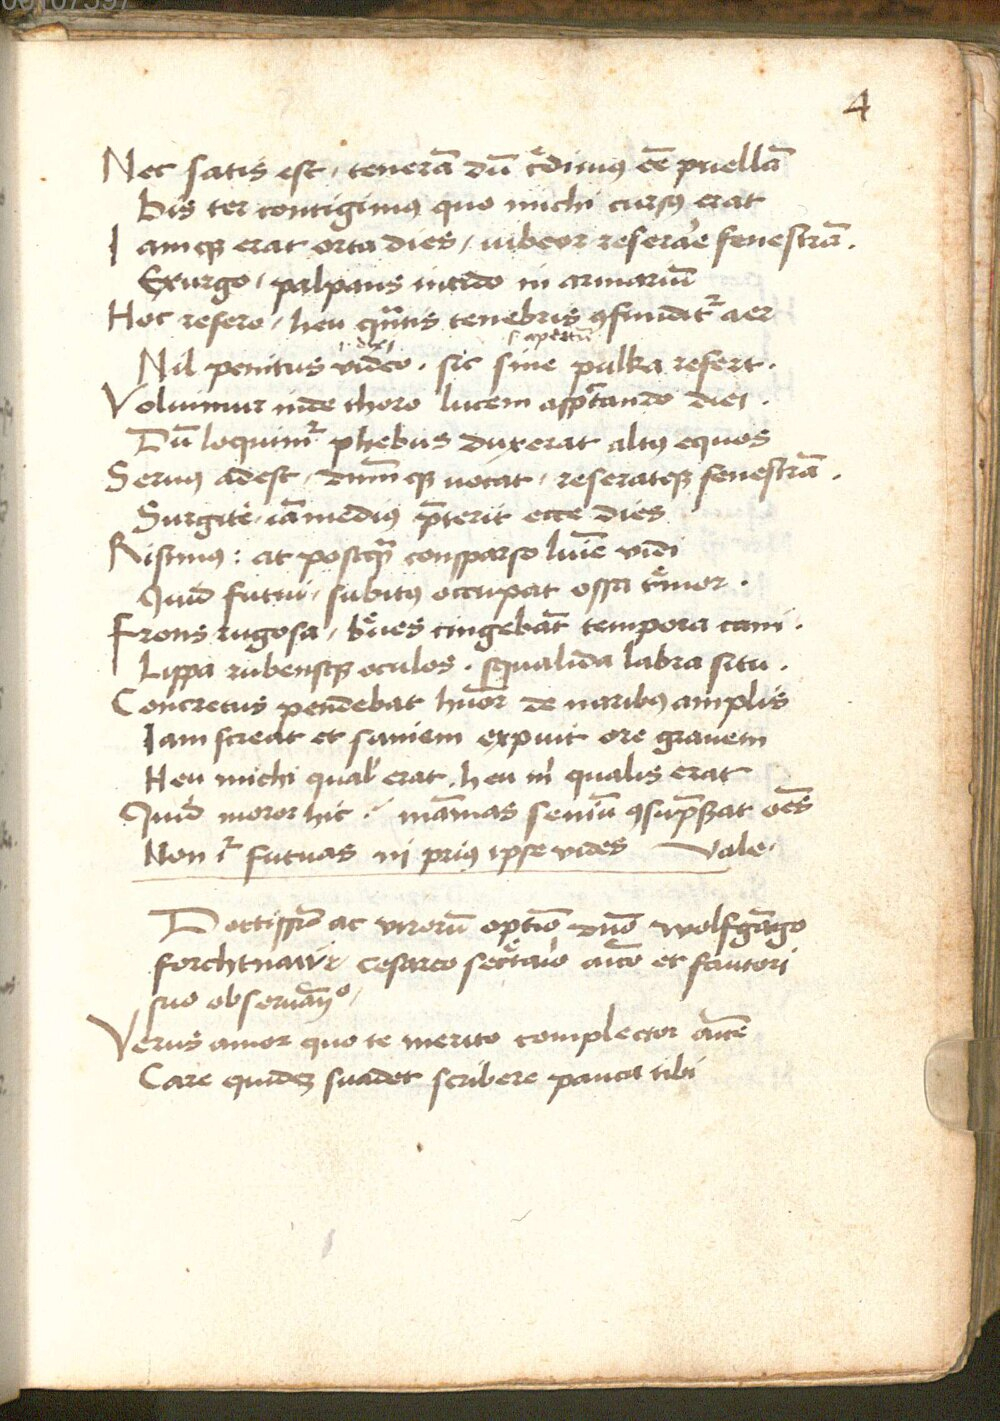 4
Nec satis est, tenerā dū c̄dimꝰ eē puellā
Bis ter contigimꝰ quo michi cursꝰ erat
Iamqꝫ erat orta dies, iubeor reserare fenestrā.
Exurgo, palpans incido in armariū
Hoc resero, heu qntis tenebris ꝯfundit᷑ aer
i. dixi s. apertū
Nil penitus video. sic sine pulka refert.
Voluimur inde thoro lucem asptando diei.
Dū loquim᷑ phebus duxerat altꝰ equos
Seruꝰ adest, dnmqꝫ uocat, reseratqꝫ fenestrā.
Surgite, iā mediꝰ p̄terit ecce dies
Risimus: at postq̄ consparso luīe vidi
Quid futui, subitꝰ occupat ossa t̄mor.
Frons rugosa, b̄ues cingebāt tempora cani.
Lippa rubensqꝫ oculos. squalida labra situ.
Concretus pendebat huōr de naribꝰ amplis
Iam screat et saniem expuit ore grauem
Heu michi qual' erat, heu m' qualis erat
Quid moror hic? māmas seniū ꝯsūpsat oēs
Non i᷑ futuas ni priꝰ ipse vides Vale.
Doctissīo ac virorū optīo dnō wolfgāgo
forchtnawir cesareo sec̄tario aīco et fautori
suo obseruān°,
Verus amor quo te merito complector aīce
Care quidē suadet scribere pauca tibi